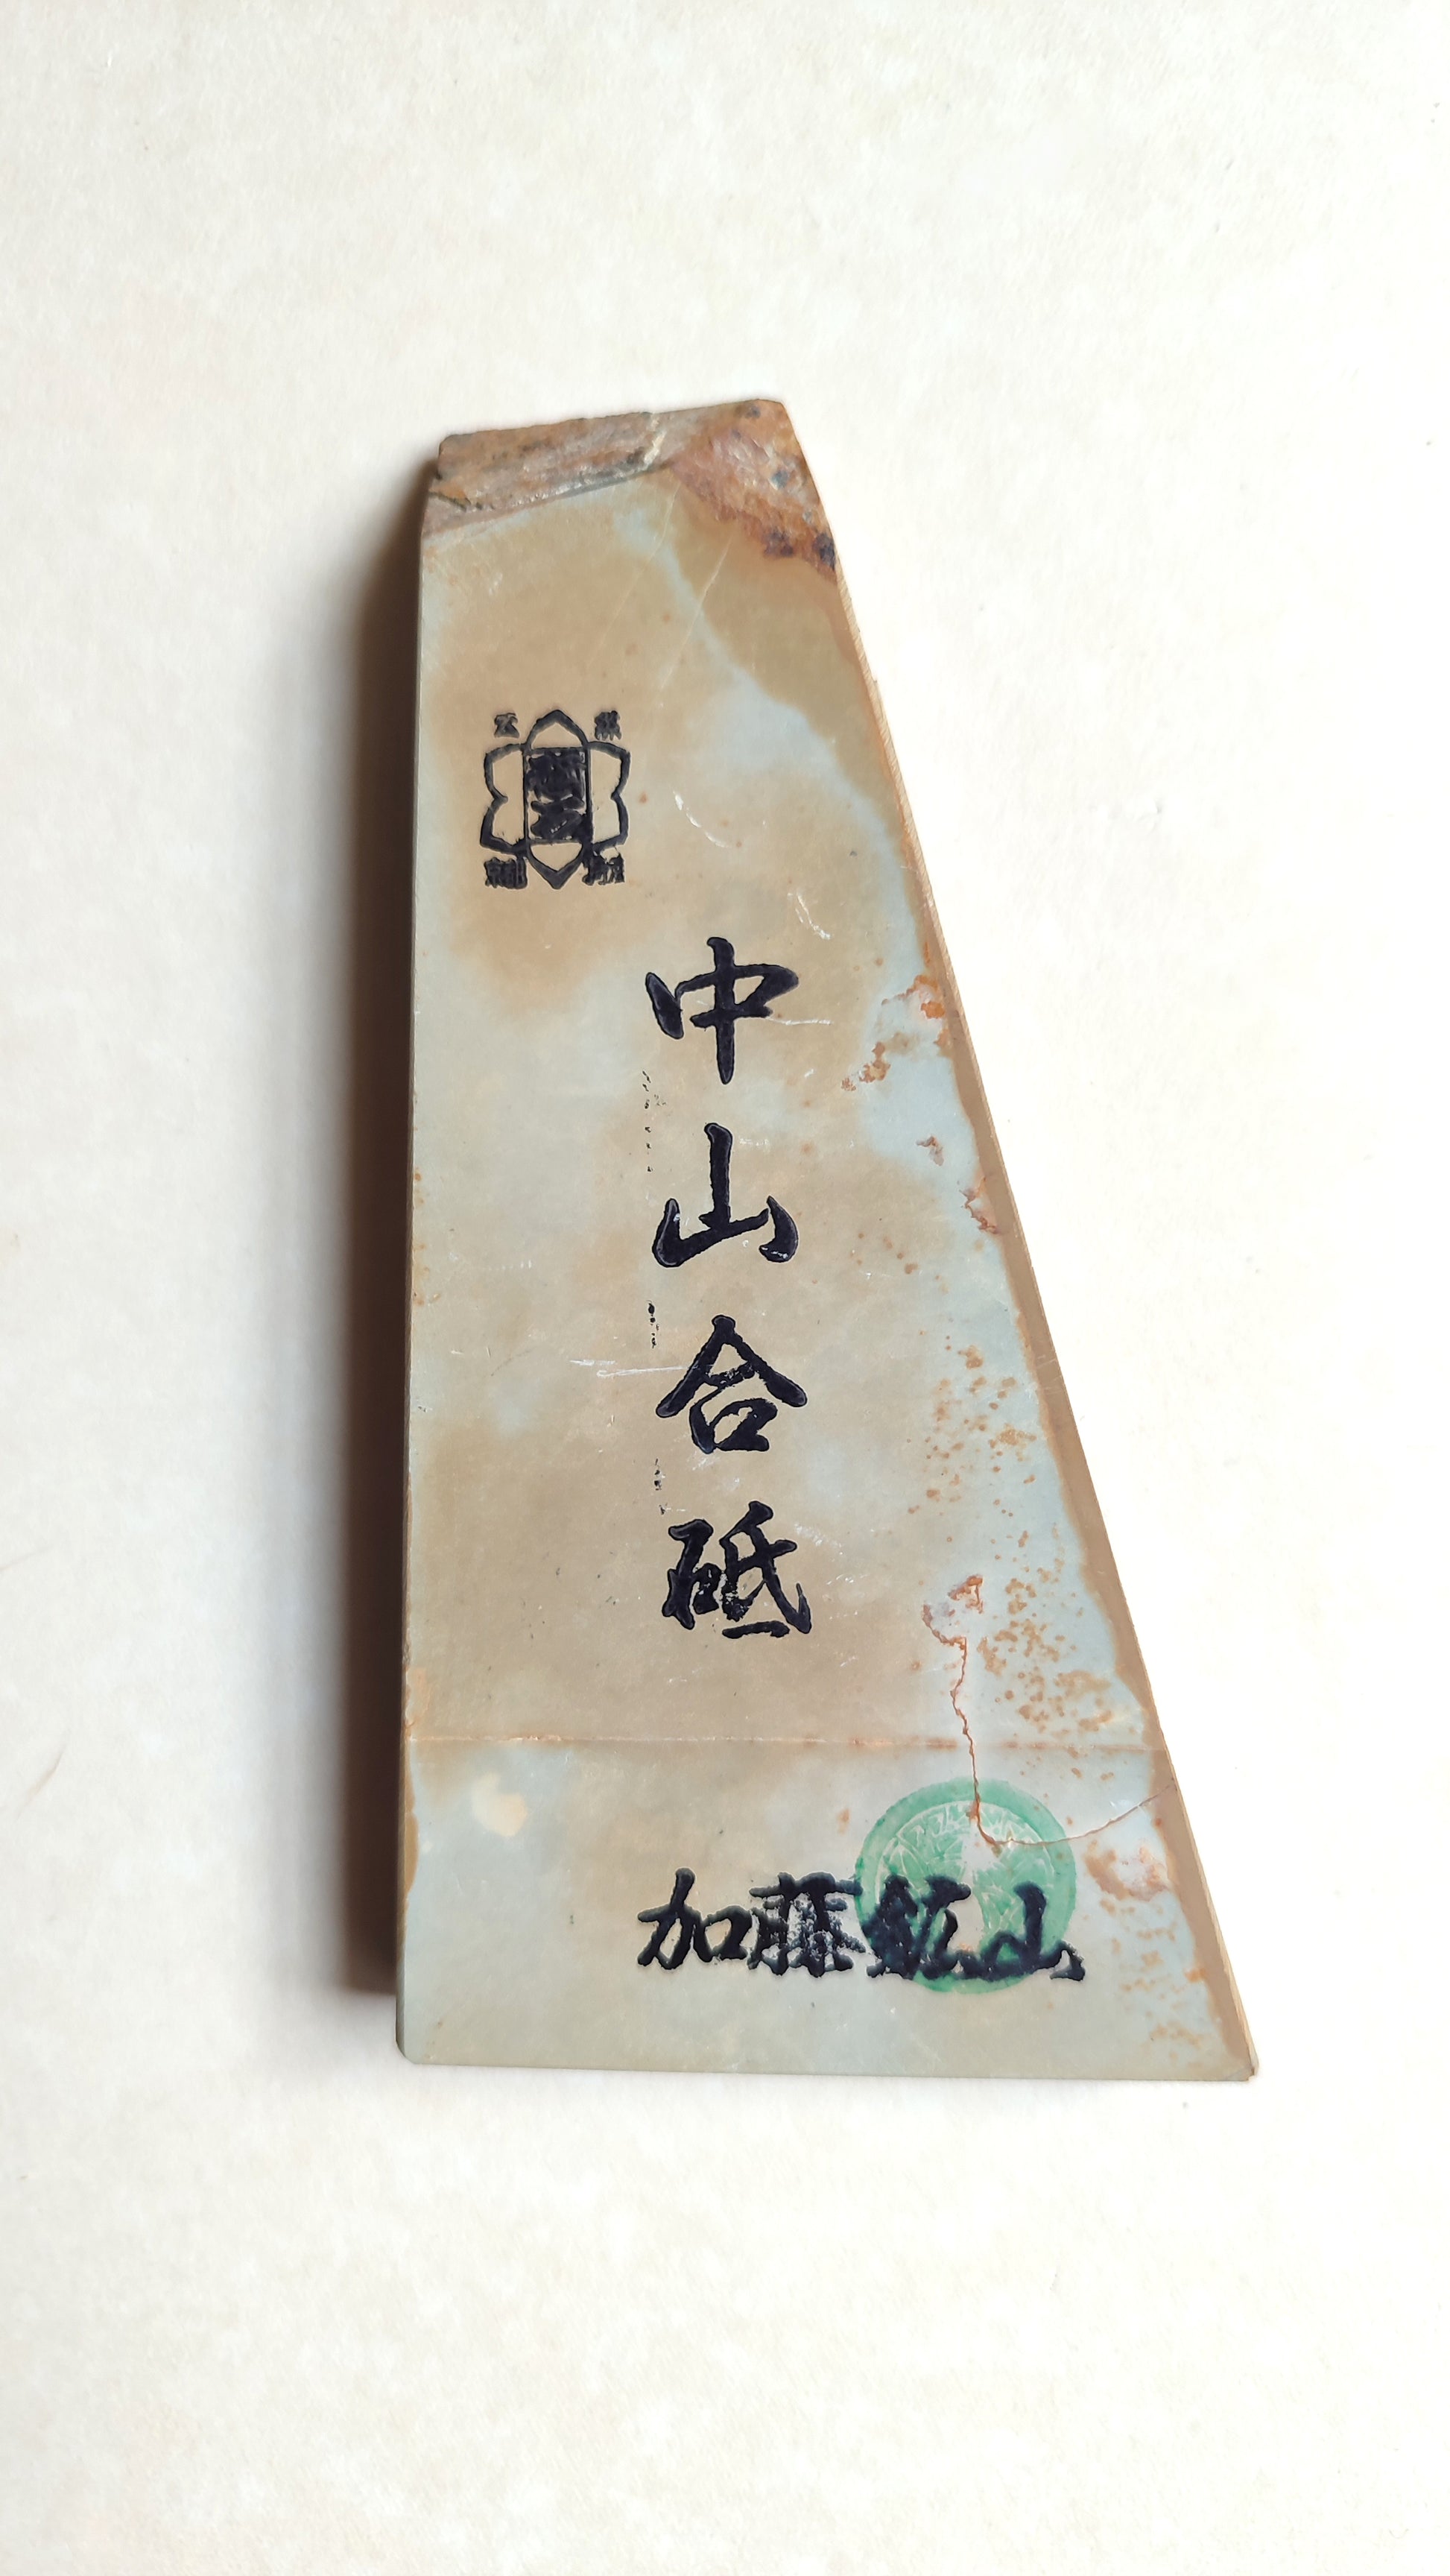 京都
中山合砥
加藤鉱山